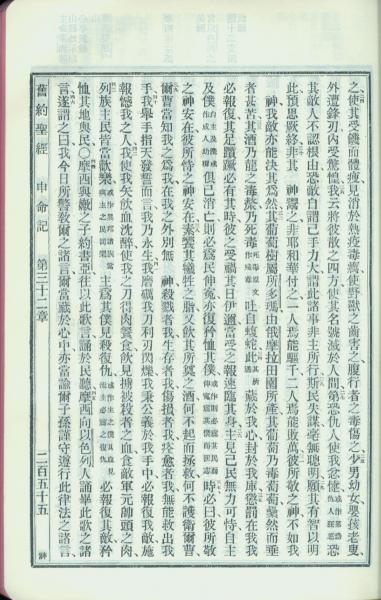 之、使其受饑而殘疲、見消於熱疫毒癘、使野獸之齒害之、腹行者之毒傷之、少男幼女嬰孩老叟、
外遭鋒刃、內受驚惶、我云將彼散之四方、使其名號滅於人間、第恐仇人使我忿恚、恐
其敵人不認根由、恐敵自謂己手力大、謂此諸事非主所行、斯民失謀、毫無聰明、願其有智以明
此預思厥終、非其神鬻之、非耶和華付之、一人焉能驅千、二人焉能敗萬、彼所敬之神不如我
神、我敵亦能決其為然、其葡萄樹屬所多瑪、由俄摩拉田園所產、其葡萄乃毒葡萄、纍然而垂
者甚苦、其酒乃龍之毒漿、乃死毒、吐自蝮蛇、此藏於我心、封於我庫、懲罰在我、我
必報復、其足躓蹶必有其時、彼之受禍其日伊邇、當受之報速臨其身、主見己民無力可恃、自主
及僕俱已消亡、則必為民伸冤、亦復矜恤其僕、時必曰、彼所敬
之神安在、彼所倚之神安在、素饗其犧牲之脂、又飲其所奠之酒、何不起而拯救、何不護衛爾曹、
爾曹當知我之為我、在我之外別無神、殺戮者我、生存者我、傷損者我、痊愈者我、無能救出我
手、我舉手指天發誓、而言我乃永生、我磨礪我刃、利刃閃爍、我秉公義於我手中、必報復我敵、施
報憾我之人、我使我矢飲血沈醉、使我之刀得肉饕食、飲見擄被殺者之血、食敵軍元帥頭之肉、
列族主民、皆當歡樂、主為其僕見殺復仇、必報復其敵、矜
恤其地與民、○摩西與嫩之子約書亞、往以此歌言誦於民聽、摩西向以色列人誦畢此歌之諸
言、遂謂之曰、我今日所警教爾之諸言、爾當藏於心中、亦當諭爾子孫、謹守遵行此律法之諸言、
舊約聖經 申命記 第三十二章 二百五十五